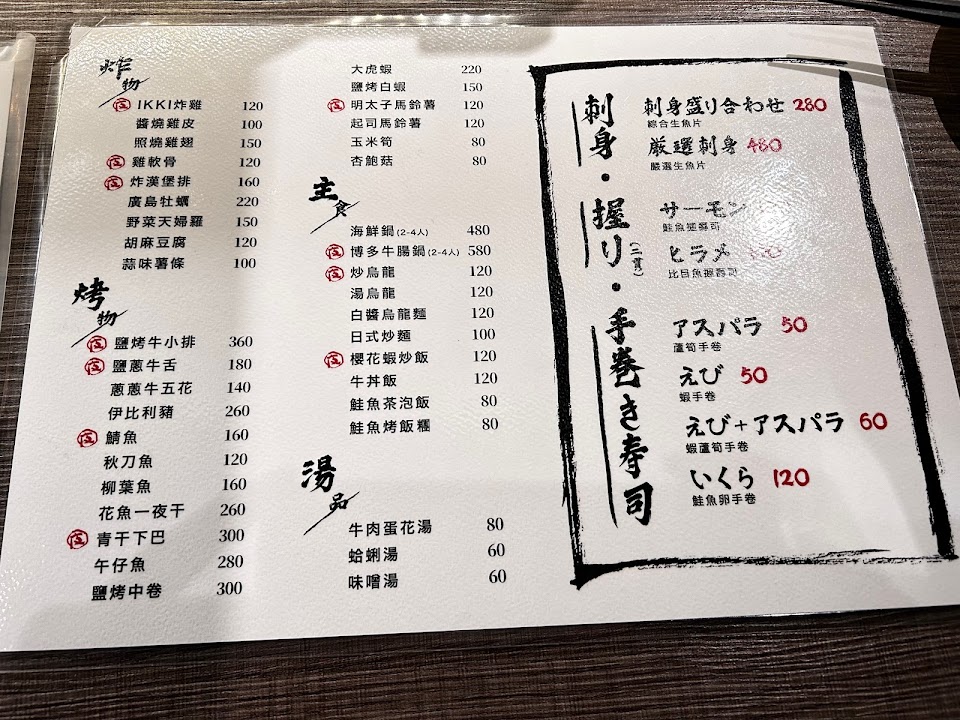 炸物
IKKI炸雞 120
醬燒雞皮 100
照燒雞翅 150
雞軟骨 120
炸漢堡排 160
廣島牡蠣 220
野菜天婦羅 150
胡麻豆腐 120
蒜味薯條 100
烤物
鹽烤牛小排 360
鹽蔥牛舌 180
蔥蔥牛五花 140
伊比利豬 260
鯖魚 160
秋刀魚 120
柳葉魚 160
花魚一夜干 260
青干下巴 300
午仔魚 280
鹽烤中卷 300
大虎蝦 220
鹽烤白蝦 150
明太子馬鈴薯 120
起司馬鈴薯 120
玉米筍 80
杏鮑菇 80
主食
海鮮鍋(2-4人) 480
博多牛腸鍋(2-4人) 580
炒烏龍 120
湯烏龍 120
白醬烏龍麵 120
日式炒麵 100
櫻花蝦炒飯 120
牛丼飯 120
鮭魚茶泡飯 80
鮭魚烤飯糰 80
湯品
牛肉蛋花湯 80
蛤蜊湯 60
味噌湯 60
刺身・握り(二貫)・手巻き寿司
刺身盛り合わせ 280
綜合生魚片
厳選刺身 480
嚴選生魚片
サーモン
鮭魚握壽司
ヒラメ
比目魚握壽司
アスパラ 50
蘆筍手卷
えび 50
蝦手卷
えび+アスパラ 60
蝦蘆筍手卷
いくら 120
鮭魚卵手卷